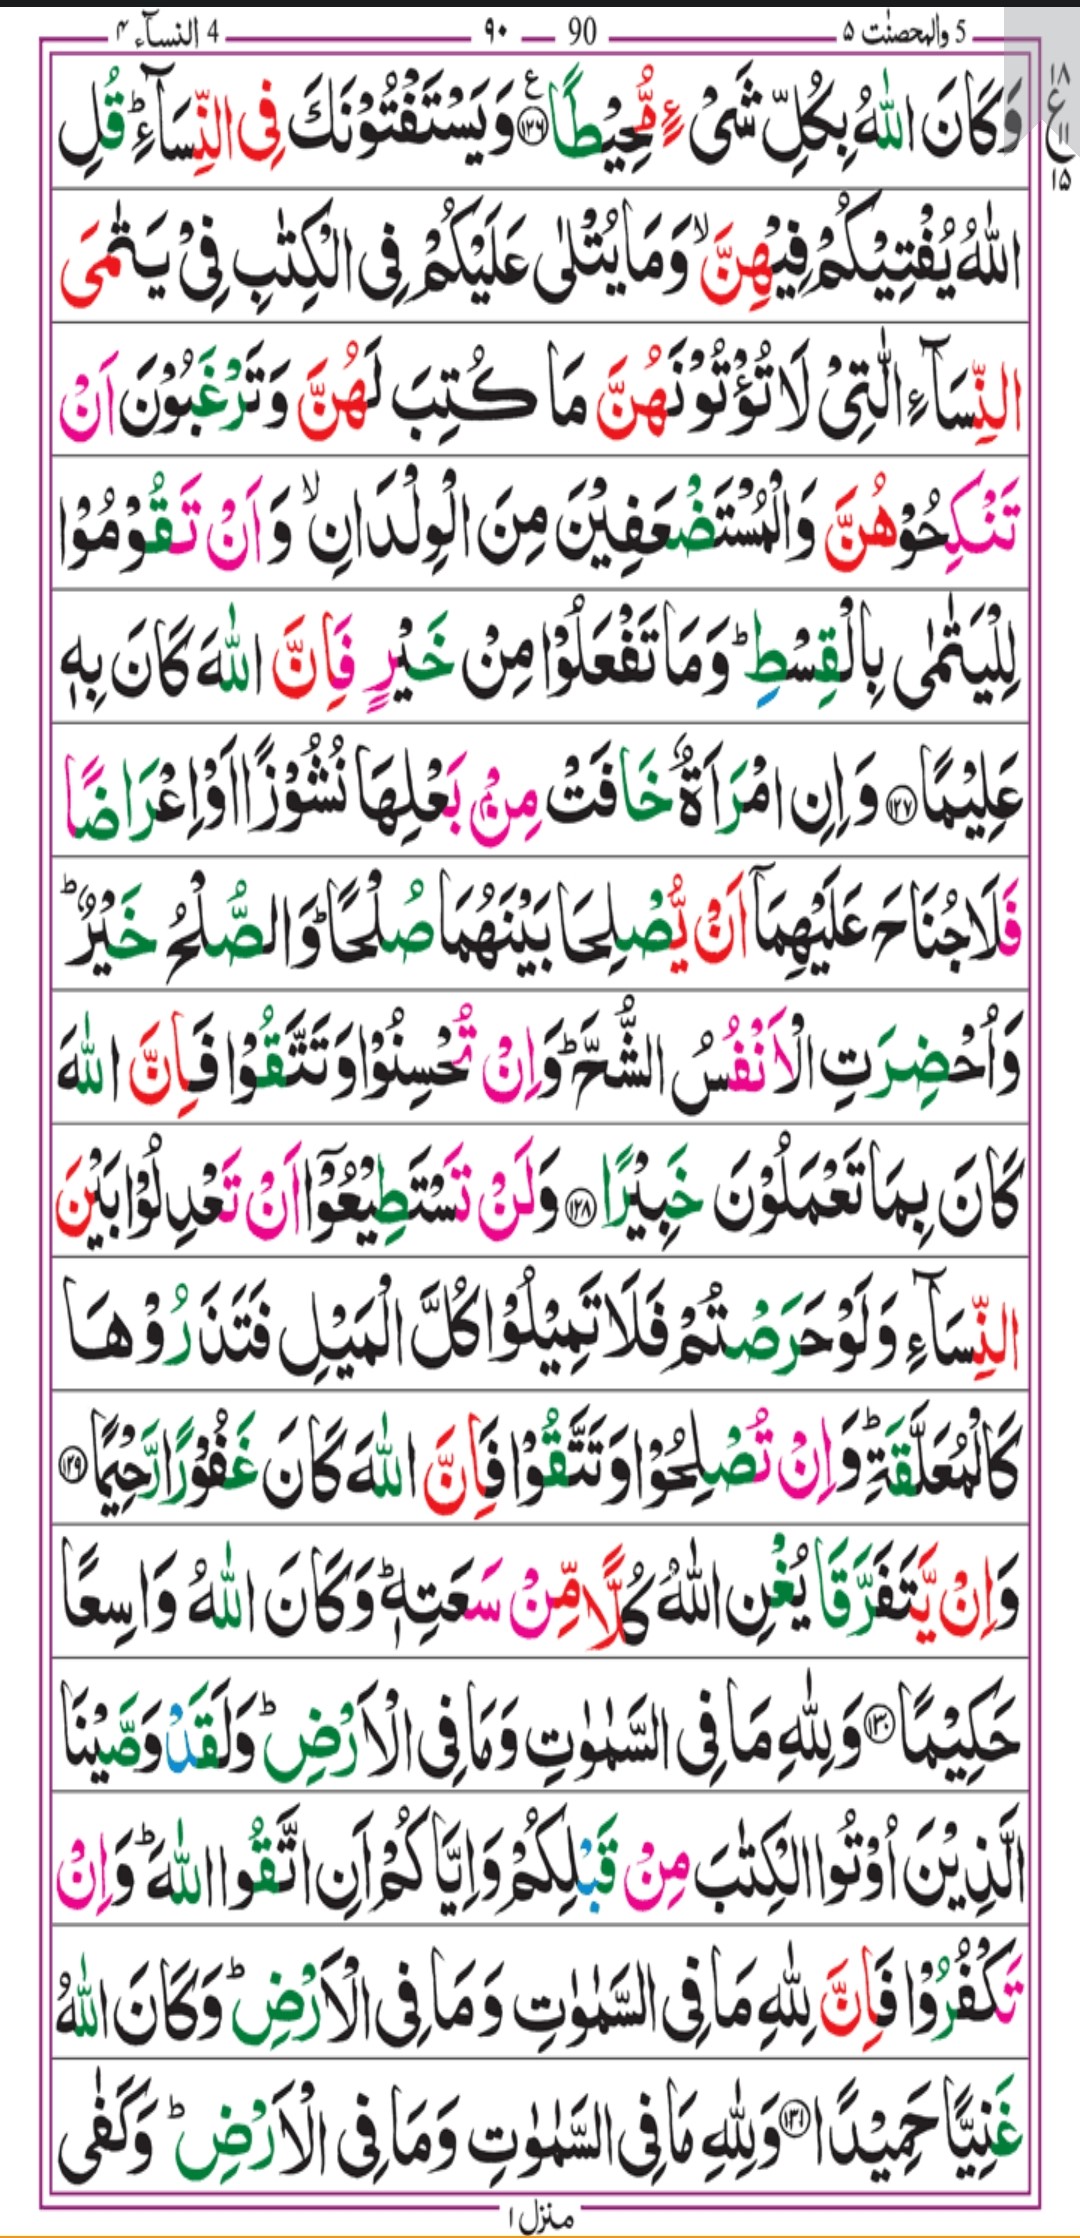 5 والمحصنٰت ۵ 90 ۹۰ 4 النسآء ۴
۱۸
ع
۱۱
۱۵
وَكَانَ اللّٰهُ بِكُلِّ شَیْءٍ مُّحِیْطًا ۝۱۲۶ وَیَسْتَفْتُوْنَكَ فِی النِّسَآءِ ؕ قُلِ
اللّٰهُ یُفْتِیْكُمْ فِیْهِنَّ ۙ وَمَا یُتْلٰی عَلَیْكُمْ فِی الْكِتٰبِ فِیْ یَتٰمَی
النِّسَآءِ الّٰتِیْ لَا تُؤْتُوْنَهُنَّ مَا كُتِبَ لَهُنَّ وَتَرْغَبُوْنَ اَنْ
تَنْكِحُوْهُنَّ وَالْمُسْتَضْعَفِیْنَ مِنَ الْوِلْدَانِ ۙ وَاَنْ تَقُوْمُوْا
لِلْیَتٰمٰی بِالْقِسْطِ ؕ وَمَا تَفْعَلُوْا مِنْ خَیْرٍ فَاِنَّ اللّٰهَ كَانَ بِهٖ
عَلِیْمًا ۝۱۲۷ وَاِنِ امْرَاَةٌ خَافَتْ مِنْۢ بَعْلِهَا نُشُوْزًا اَوْ اِعْرَاضًا
فَلَا جُنَاحَ عَلَیْهِمَاۤ اَنْ یُّصْلِحَا بَیْنَهُمَا صُلْحًا ؕ وَالصُّلْحُ خَیْرٌ ؕ
وَاُحْضِرَتِ الْاَنْفُسُ الشُّحَّ ؕ وَاِنْ تُحْسِنُوْا وَتَتَّقُوْا فَاِنَّ اللّٰهَ
كَانَ بِمَا تَعْمَلُوْنَ خَبِیْرًا ۝۱۲۸ وَلَنْ تَسْتَطِیْعُوْۤا اَنْ تَعْدِلُوْا بَیْنَ
النِّسَآءِ وَلَوْ حَرَصْتُمْ فَلَا تَمِیْلُوْا كُلَّ الْمَیْلِ فَتَذَرُوْهَا
كَالْمُعَلَّقَةِ ؕ وَاِنْ تُصْلِحُوْا وَتَتَّقُوْا فَاِنَّ اللّٰهَ كَانَ غَفُوْرًا رَّحِیْمًا ۝۱۲۹
وَاِنْ یَّتَفَرَّقَا یُغْنِ اللّٰهُ كُلًّا مِّنْ سَعَتِهٖ ؕ وَكَانَ اللّٰهُ وَاسِعًا
حَكِیْمًا ۝۱۳۰ وَلِلّٰهِ مَا فِی السَّمٰوٰتِ وَمَا فِی الْاَرْضِ ؕ وَلَقَدْ وَصَّیْنَا
الَّذِیْنَ اُوْتُوا الْكِتٰبَ مِنْ قَبْلِكُمْ وَاِیَّاكُمْ اَنِ اتَّقُوا اللّٰهَ ؕ وَاِنْ
تَكْفُرُوْا فَاِنَّ لِلّٰهِ مَا فِی السَّمٰوٰتِ وَمَا فِی الْاَرْضِ ؕ وَكَانَ اللّٰهُ
غَنِیًّا حَمِیْدًا ۝۱۳۱ وَلِلّٰهِ مَا فِی السَّمٰوٰتِ وَمَا فِی الْاَرْضِ ؕ وَكَفٰی
منزل ۱